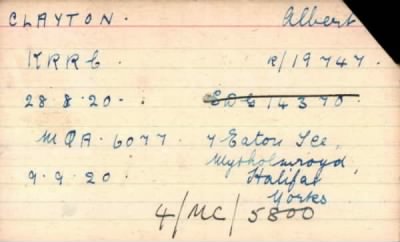 CLAYTON. Albert
KRRC R/19747.
28.8.20. EDG 14370.
MQA.6077 7 Eaton Tce,
Mytholmroyd,
9.9.20. Halifax
Yorks
4/MC/5800